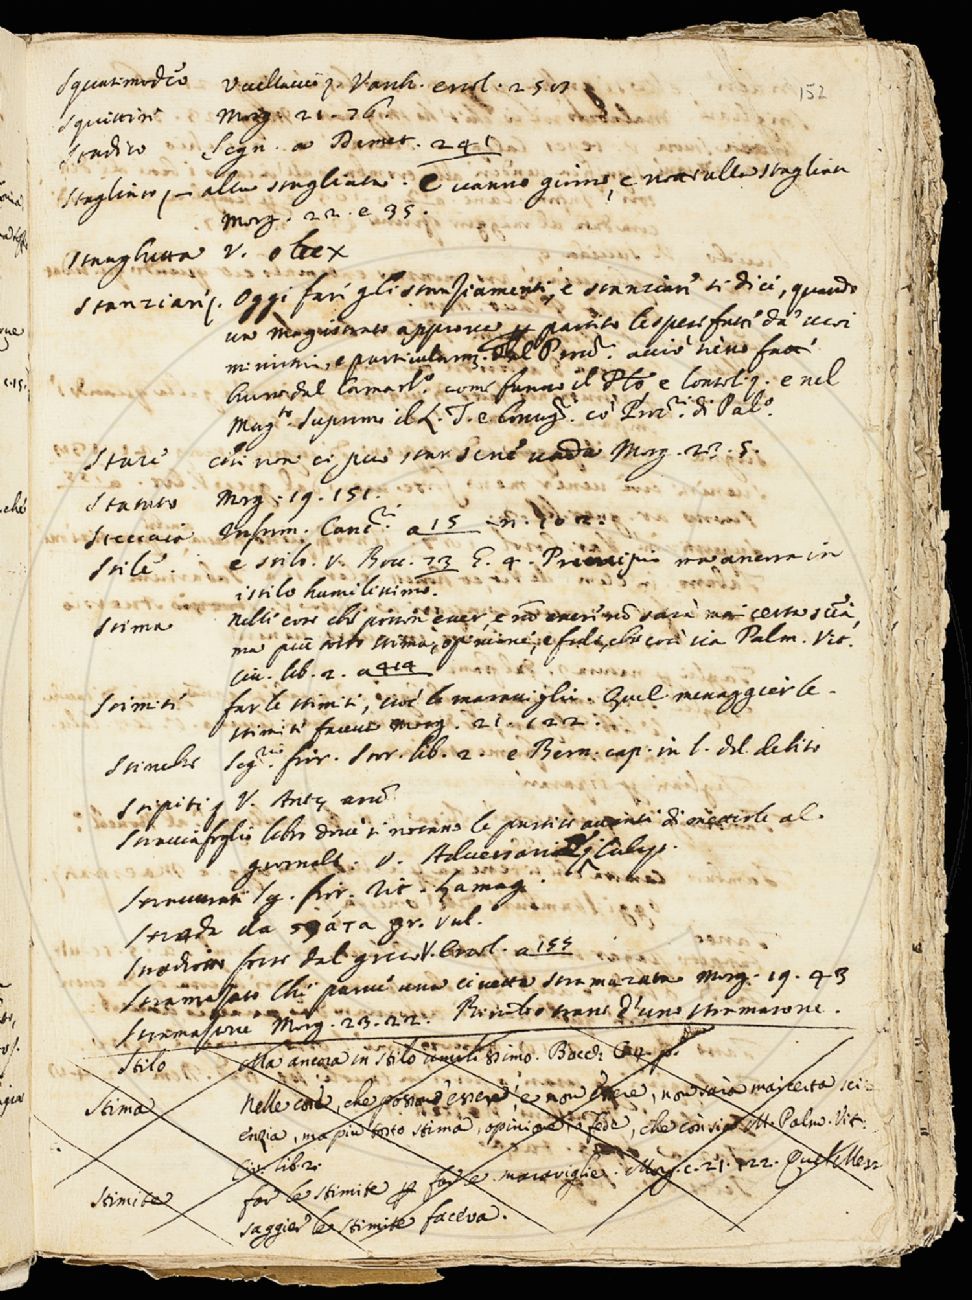 152
Squasimodeo Vcellacci p. Vanh. ercol. 251
Squittire Morg. 21. 76.
Stadico Segn. a Demet. 241
Stagliato, alla stagliata. E vanno giorno, e notte alla stagliata
Morg. 22. e 35.
Stanghetta V. obex
Stanziare p. Oggi fare gli stanziamenti, e stanziare si dice, quando
un Magistrato approva p partito le spese fatte da' suoi
ministri, e particularm. dal Prov. acciò sieno fatti
buoni dal Camarl.o come fanno il e Consol. e nel
Mag.to Supremo il L. T. e Consig. co' di Pal.o
Stare così non ci può star se ne vada Morg. 23. 5.
Statuto Morg. 19. 151.
Steccaia Inform. Canc. a 15 n. 102.
Stile. e stilo. V. Bocc. 73 E. 4. Principio ma ancora in
istilo humilissimo.
Stima nelle cose che posson esser, e nò esser nò sarà mai certa sciã,
ma più tosto stima, opinione, e fede, che così sia Palm. Vit.
civ. lib. 2. a 414
Stimite far le stimite, cioè le maraviglie. Quel messaggier le
stimite faceva Morg. 21. 122.
Stinche Seg. fior. Stor. lib. 2. e Bern. cap. in l. del debito
Stipiti V. Ante
Stracciafoglio libro dove si notano le partite avanti di metterle al
giornale. V. Adversaria Calep.
Straccurati Sg. fior. Vit. Lamag.
Strada da στράτα gr. vul.
Stradiotto forse dal greco V. Ercol. a 155
Stramazzato Che parve una civetta stramazzata Morg. 19. 43
Stramazzone Morg. 23. 22. trane d'uno stramazone.
Stilo Ma ancora in stilo umilissimo. Bocc. G. 4. p.
Stima Nelle cose, che possono essere e non essere, non sarà mai certa sci-
enzia, ma più tosto stima, opinione, o fede, che così sia M. Palm. Vit.
Civ. lib. 2.
Stimite far le stimite p far le maraviglie. Morg. c. 21. 122. Quel Mes
saggier le stimite faceva.